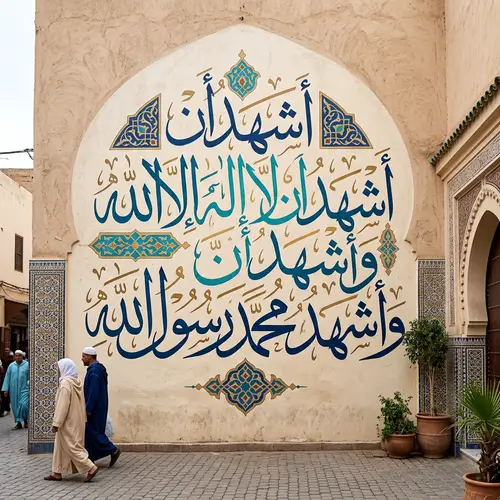 أشهد أن
أشهد ان لا إله إلا الله
وأشهد أن
وأشهد محمد رسول الله